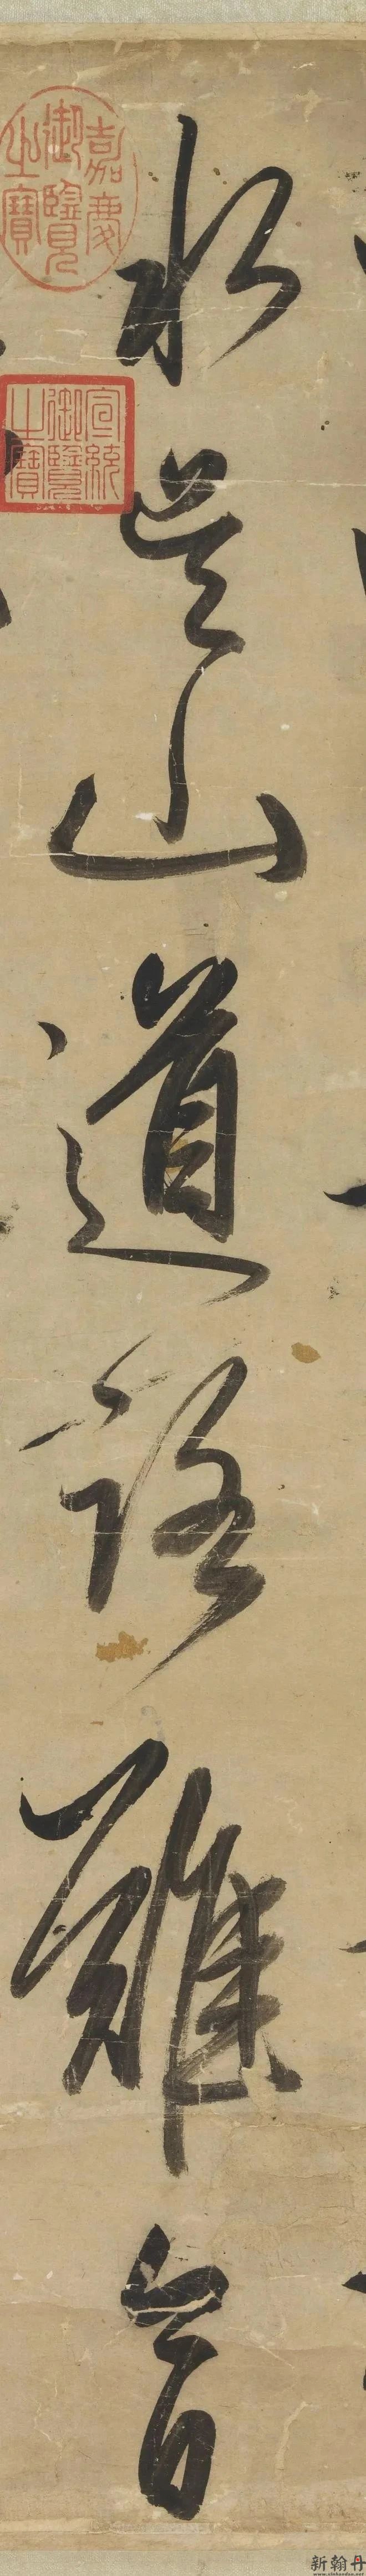 水吳山道路難
嘉慶御覽之寶
宣統御覽之寶
新翰丹